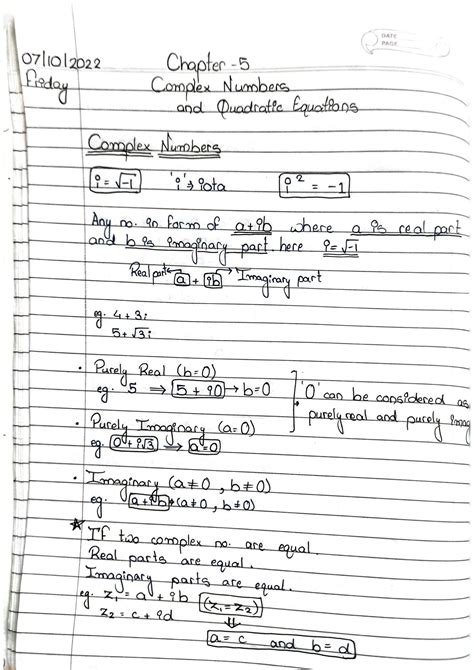 DATE
PAGE
07/10/2022 Chapter - 5
Friday Complex Numbers
and Quadratic Equations
Complex Numbers
i = √-1 'i' → iota i² = -1
Any no. in form of a+ib where a is real part
and b is imaginary part. here i = √-1
Real part ← a + ib → Imaginary part
eg. 4 + 3i
5 + √3i
• Purely Real (b=0)
eg. 5 ⇒ 5 + i0 → b=0
'0' can be considered as
purely real and purely imag
• Purely Imaginary (a=0)
eg. 0 + i√3 → a=0
• Imaginary (a≠0, b≠0)
eg. a+ib → (a≠0, b≠0)
★ If two complex no. are equal.
Real parts are equal.
Imaginary parts are equal.
eg. z₁ = a + ib (z₁=z₂)
z₂ = c + id ⇓
a = c and b = d